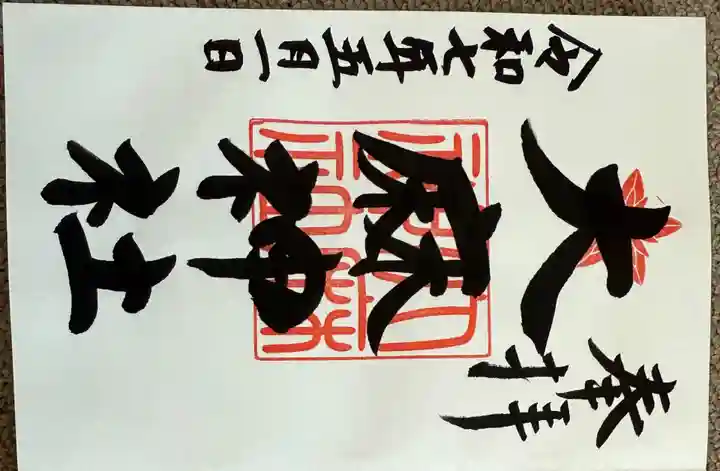 奉拝
大原神社
令和七年五月一日